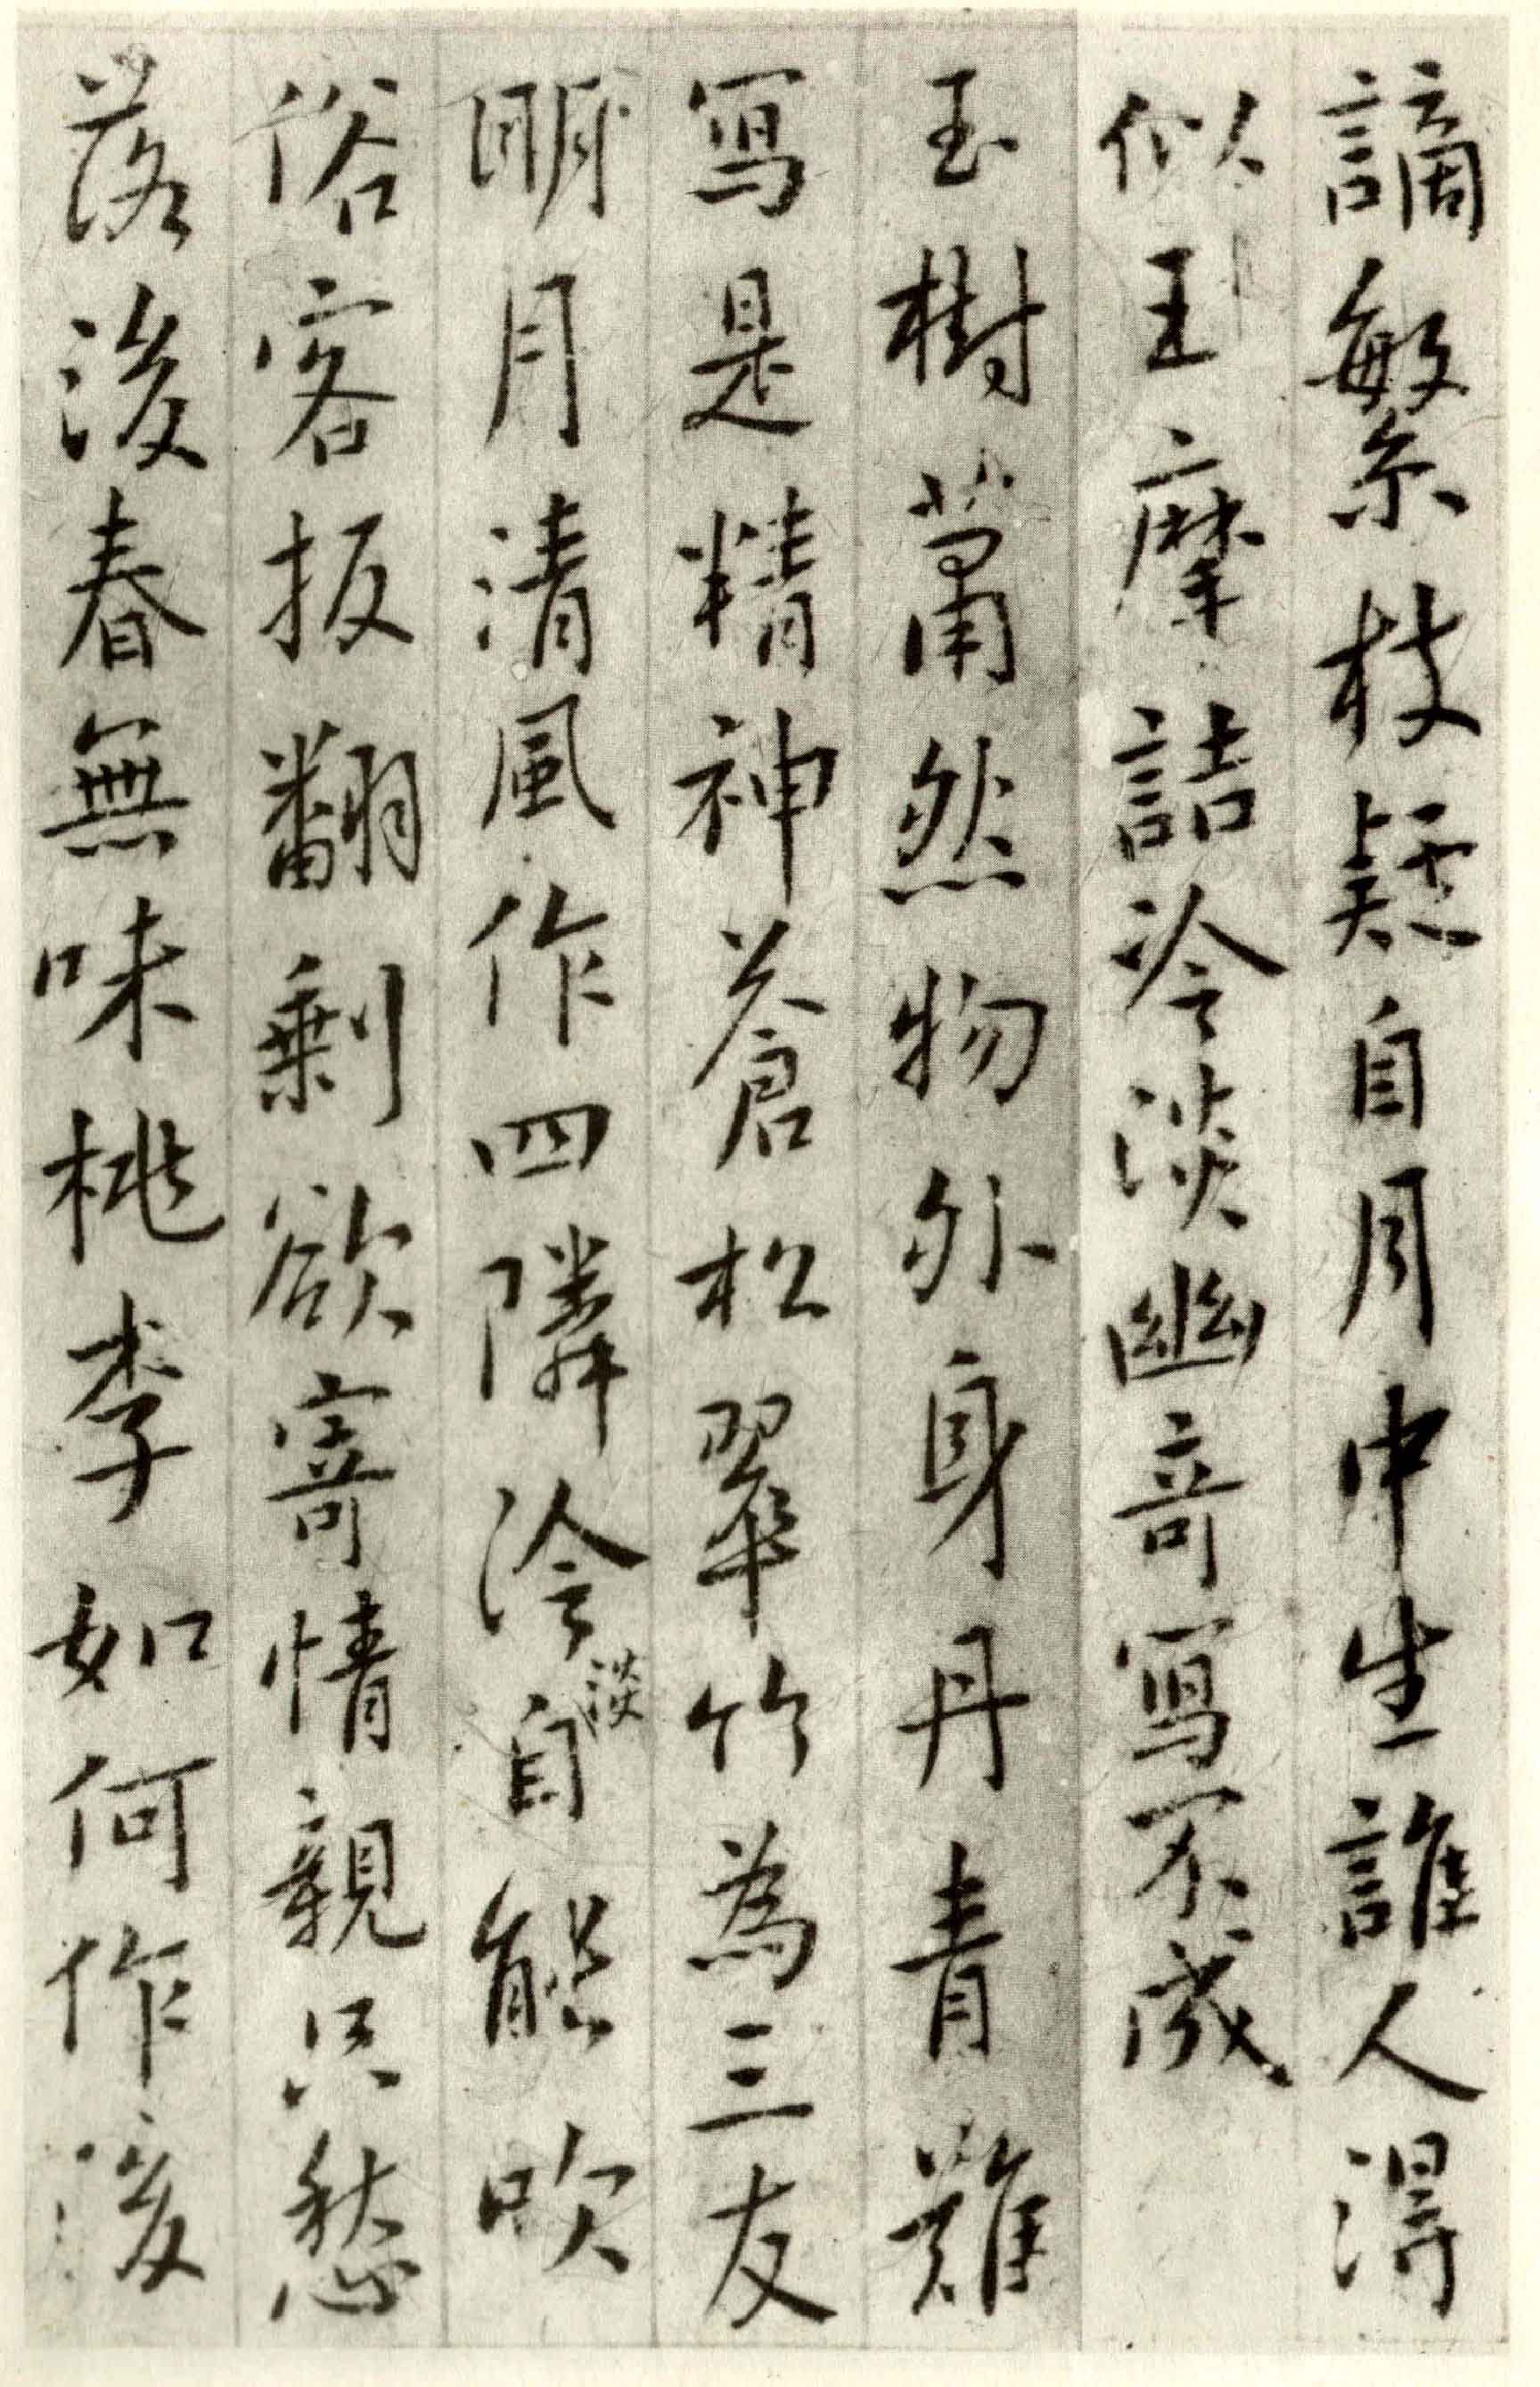 謫繁枝疑自月中生誰人得
似王摩詰冷淡幽奇寫不成
玉樹蕭然物外身丹青難
寫是精神蒼松翠竹為三友
明月清風作四隣冷淡自能吹
俗客扳翻剩欲寄情親只愁
落後春無味桃李如何作後